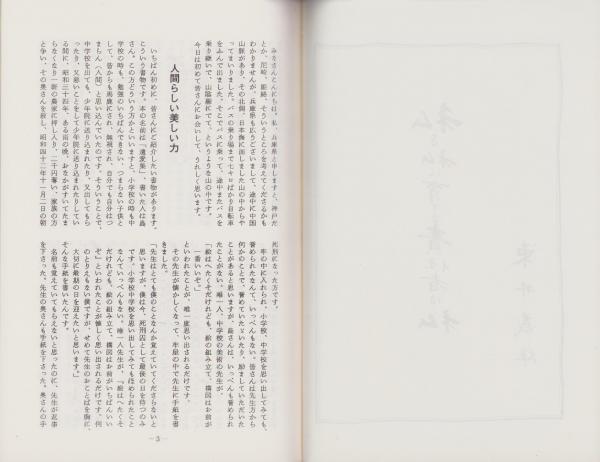 みなさんこんにちは。私、兵庫県と申しますと、神戸だ
とか、尼崎、姫路、そういうところを考えてくださるかも
わかりませんが、兵庫県も広うございまして、途中に中国
山脈があり、その北側、日本海に面しました山の中からや
ってまいりました。バスの乗り場まで七キロばかり自転車
をふんで出ました。そこでバスに乗って、途中またバスを
乗り継いで、山陰線にでて、というような山の中です。
今日は初めて皆さんにお会いして、うれしく思います。
人間らしい美しい力
いちばん初めに、皆さんにご紹介したい書物があります。
こういう書物です。本の名前は「遺愛集」、書いた人は島
さん。この方どういう方かといいますと、小学校の時も中
学校の時も、勉強のいちばんできない、つまらない子供と
して、皆からも馬鹿にされ、無視され、自分でも自分はつ
まらん（人間）と思い込んでいたのです。そういうことで、
中学校を出ても、少年院に送り込まれたり、又出してもら
ったり、又悪いことをして少年院に送り込まれたりしてい
る間に、昭和三十四年、ある雨の晩、おなかがすいてたま
らなくなり一軒の農家に押し入り、二千円奪い、家族の方
と争い、その奥さんを殺し、昭和四十二年十一月二日の朝
死刑になった方です。
牢の中に入れられ、小学校、中学校を思い出してみても、
誉められたなんていっぺんもない。皆さんは先生方から
何かのことで、誉めていただいたり、励ましていただいた
ことがあると思いますが、島さんは、いっぺんも誉められ
たことがない。唯一人、中学校の美術の先生が、
「絵はへたくそだけれども、絵の組み立て、構図はお前が
一番いいぞ。」
といわれたことが、唯一度思い出されるだけです。
その先生が懐かしくなって、牢屋の中で先生に手紙を書
きました。
「先生はとても僕のことなんか覚えていてくださらないと
思いますが、僕は今、死刑囚として最後の日を待つのみ
です。小学校中学校を思い出してみてもほめられたこと
なんていっぺんもない。唯一人先生が、『絵はへたくそ
だけれども、絵の組み立て、構図はお前がいちばんいい
ぞ』といわれたことが懐しく思い出されるだけです。何
のとりえもない僕ですが、せめて先生のおことばを胸に、
大切に最期の日を迎えたいと思います。」
そんな手紙を書いたんです。
名前も覚えていてもらえないと思ったのに、先生が返事
を下さった。先生の奥さんも手紙を下さった。奥さんの手
—3—